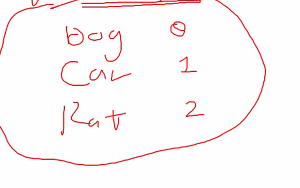 Dog 0
Car 1
Rat 2